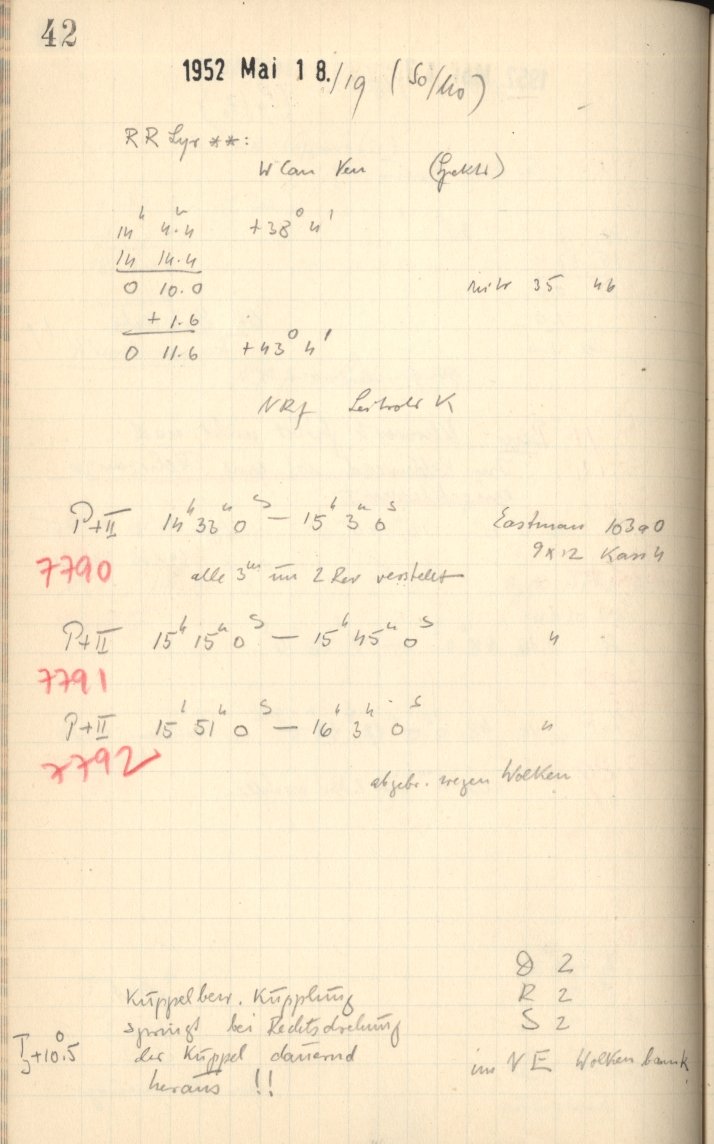 42
1952 Mai 18./19 (So/Mo)
RR Lyr **:
W Can Ven (Spektr)
14ʰ 4.4 +38° 4'
14 14.4
0 10.0 mitr 35 46
+ 1.6
0 11.6 +43° 4'
NRf K
P+II 14ʰ 33ᵐ 0ˢ — 15ʰ 3ᵐ 0ˢ Eastman 103a0
9x12 Kass 4
7790 alle 3ᵐ um 2 Rev verstellt
P+II 15ʰ 15ᵐ 0ˢ — 15ʰ 45ᵐ 0ˢ "
7791
P+II 15ʰ 51ᵐ 0ˢ — 16ʰ 3ᵐ 0ˢ "
7792
abgebr. wegen Wolken
D 2
Kuppelbew. Kupplung R 2
springt bei Rechtsdrehung S 2
T₃+10.°5 der Kuppel dauernd im NE Wolkenbank
heraus !!